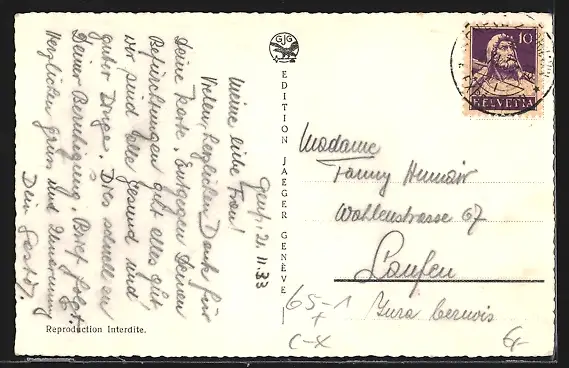 Genf, 21. 11. 33
Meine liebe Frau!
Vielen, herzlichen Dank für
Deine Karte. Entgegen Deinen
Befürchtungen geht alles gut,
wir sind alle gesund und
guter Dinge. Dies schnell zu
Deiner Beruhigung. Brief folgt.
Herzlichen Gruss und Umarmung
Dein
Reproduction Interdite.
GJG
EDITION JAEGER GENÈVE
10
HELVETIA
Madame
Fanny
Wahlenstrasse 67
Laufen
Jura bernois
65-1
+
C-X